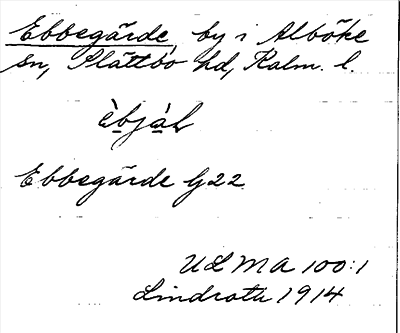 Ebbegärde, by i Alböke
sn, Slättbo hd, Kalm. l.
èbjàl
Ebbegärde G22
ULMA 100:1
Lindroth 1914